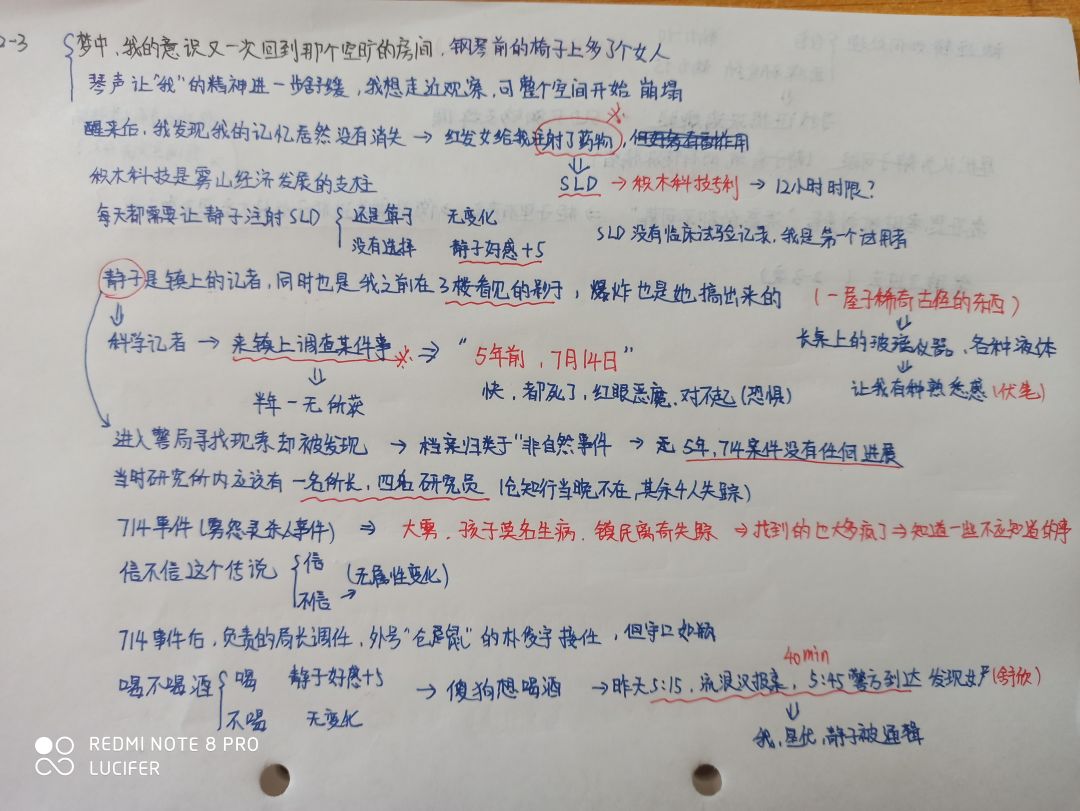 2-3 梦中，我的意识又一次回到那个空旷的房间，钢琴前的椅子上多了个女人
琴声让"我"的精神进一步舒缓，我想走近观察，可整个空间开始 崩塌
醒来后，我发现我的记忆居然没有消失 → 红发女给我注射了药物，但
积木科技是雾山经济发展的支柱 SLD → 积木科技专利 → 12小时时限？
每天都需要让静子注射SLD 还是算了 无变化
没有选择 静子好感+5 SLD没有临床试验记录，我是第一个试用者
静子是镇上的记者，同时也是我之前在3楼看见的影子，爆炸也是她搞出来的 (一屋子稀奇古怪的东西)
科学记者 → 来镇上调查某件事 ⇒ "5年前，7月14日" 长桌上的玻璃仪器、各种液体
半年一无所获 快，都死了，红眼恶魔，对不起(恐惧) 让我有种熟悉感(伏笔)
进入警局寻找线索却被发现 → 档案归类于"非自然事件 → 无 5年，714案件没有任何进展
当时研究所内应该有一名所长，四名研究员 (仓知行当晚不在，其余4人失踪)
714事件(雾怨灵杀人事件) ⇒ 大雾，孩子莫名生病，镇民离奇失踪 → 找到的也大多疯了 → 知道一些不应知道的事
信不信这个传说 信 (无属性变化)
不信
714事件后，负责的局长调任，外号"仓鼠"的朴俊宇接任，但守口如瓶
40min
喝不喝酒 喝 静子好感+5 → 傻狗想喝酒 → 昨天5:15，流浪汉报案，5:45警方到达 发现女尸(舒欣)
不喝 无变化
我，星代，静子被通缉
REDMI NOTE 8 PRO
LUCIFER